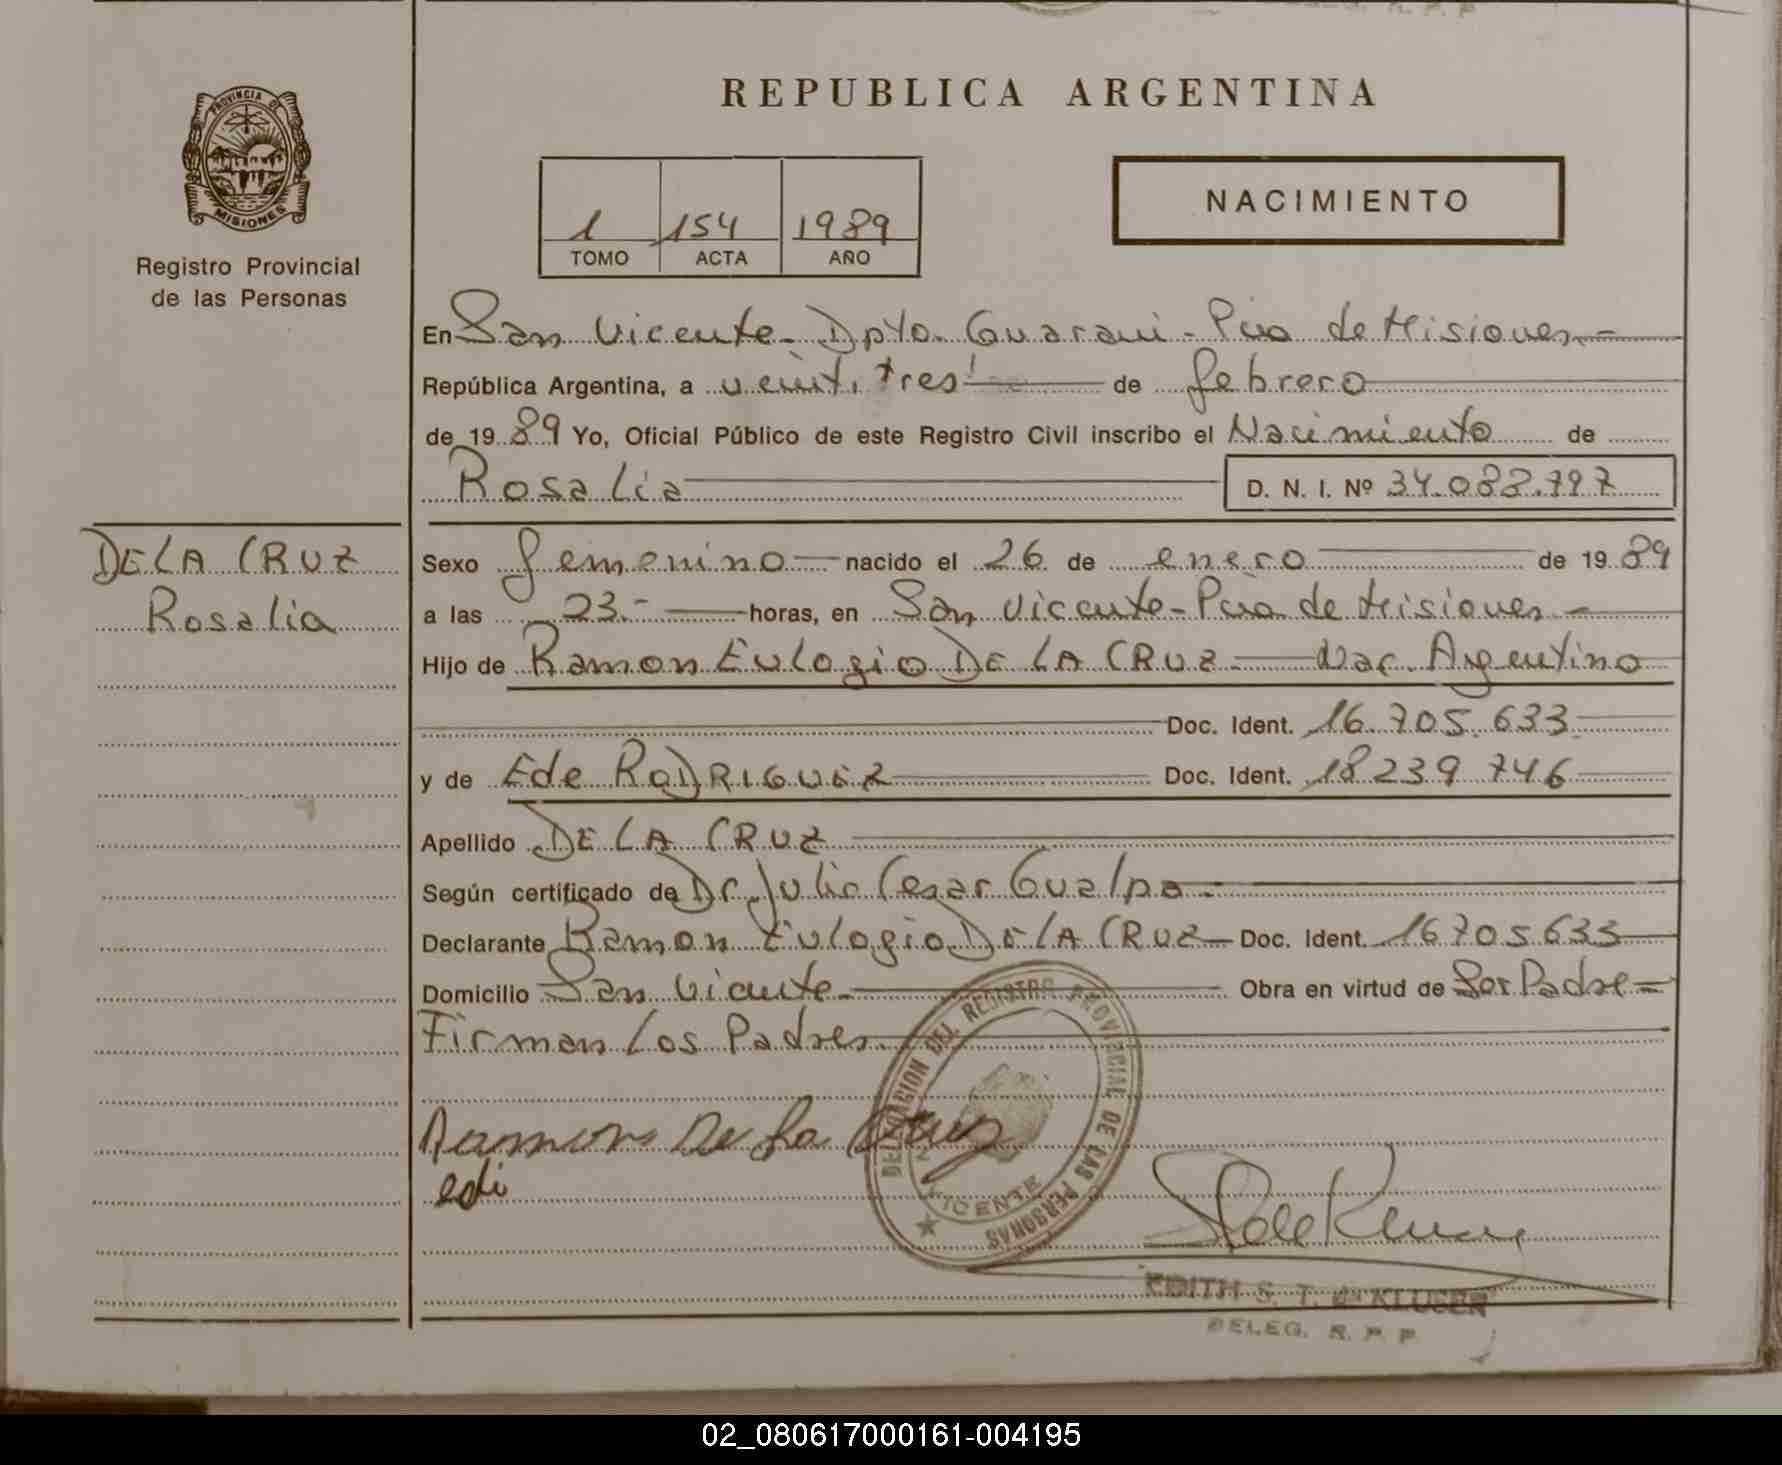 REPUBLICA ARGENTINA
PROVINCIA DE
MISIONES
Registro Provincial
de las Personas
1 154 1989
TOMO ACTA AÑO
NACIMIENTO
En San Vicente - Dpto. Guarani - Pcia de Misiones -
República Argentina, a veinti tres de febrero
de 1989 Yo, Oficial Público de este Registro Civil inscribo el Nacimiento de
Rosalia D. N. I. Nº 34.088.797
DE LA CRUZ
Rosalia
Sexo femenino nacido el 26 de enero de 1989
a las 23.- horas, en San Vicente - Pcia de Misiones -
Hijo de Ramon Eulogio DE LA CRUZ - Nac. Argentino
Doc. Ident. 16.705.633
y de Ede RODRIGUEZ Doc. Ident. 18.239.746
Apellido DE LA CRUZ
Según certificado de Dr. Julio Cesar Gualpa.
Declarante Ramon Eulogio DE LA CRUZ - Doc. Ident. 16.705.633
Domicilio San Vicente - Obra en virtud de Ser Padre -
Firman Los Padres.
Ramon De La Cruz
edi
DELEGACION DEL REGISTRO PROVINCIAL DE LAS PERSONAS
VICENTE
EDITH S. T. de KLUSEN
DELEG. R. P. P.
02_080617000161-004195